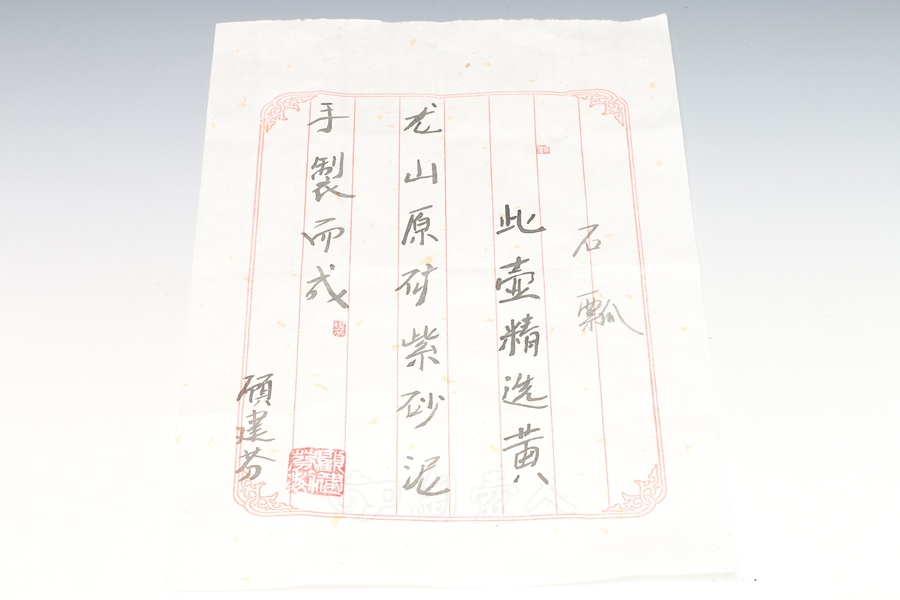 石瓢
此壶精选黄
龙山原矿紫砂泥
手製而成
顾建芬